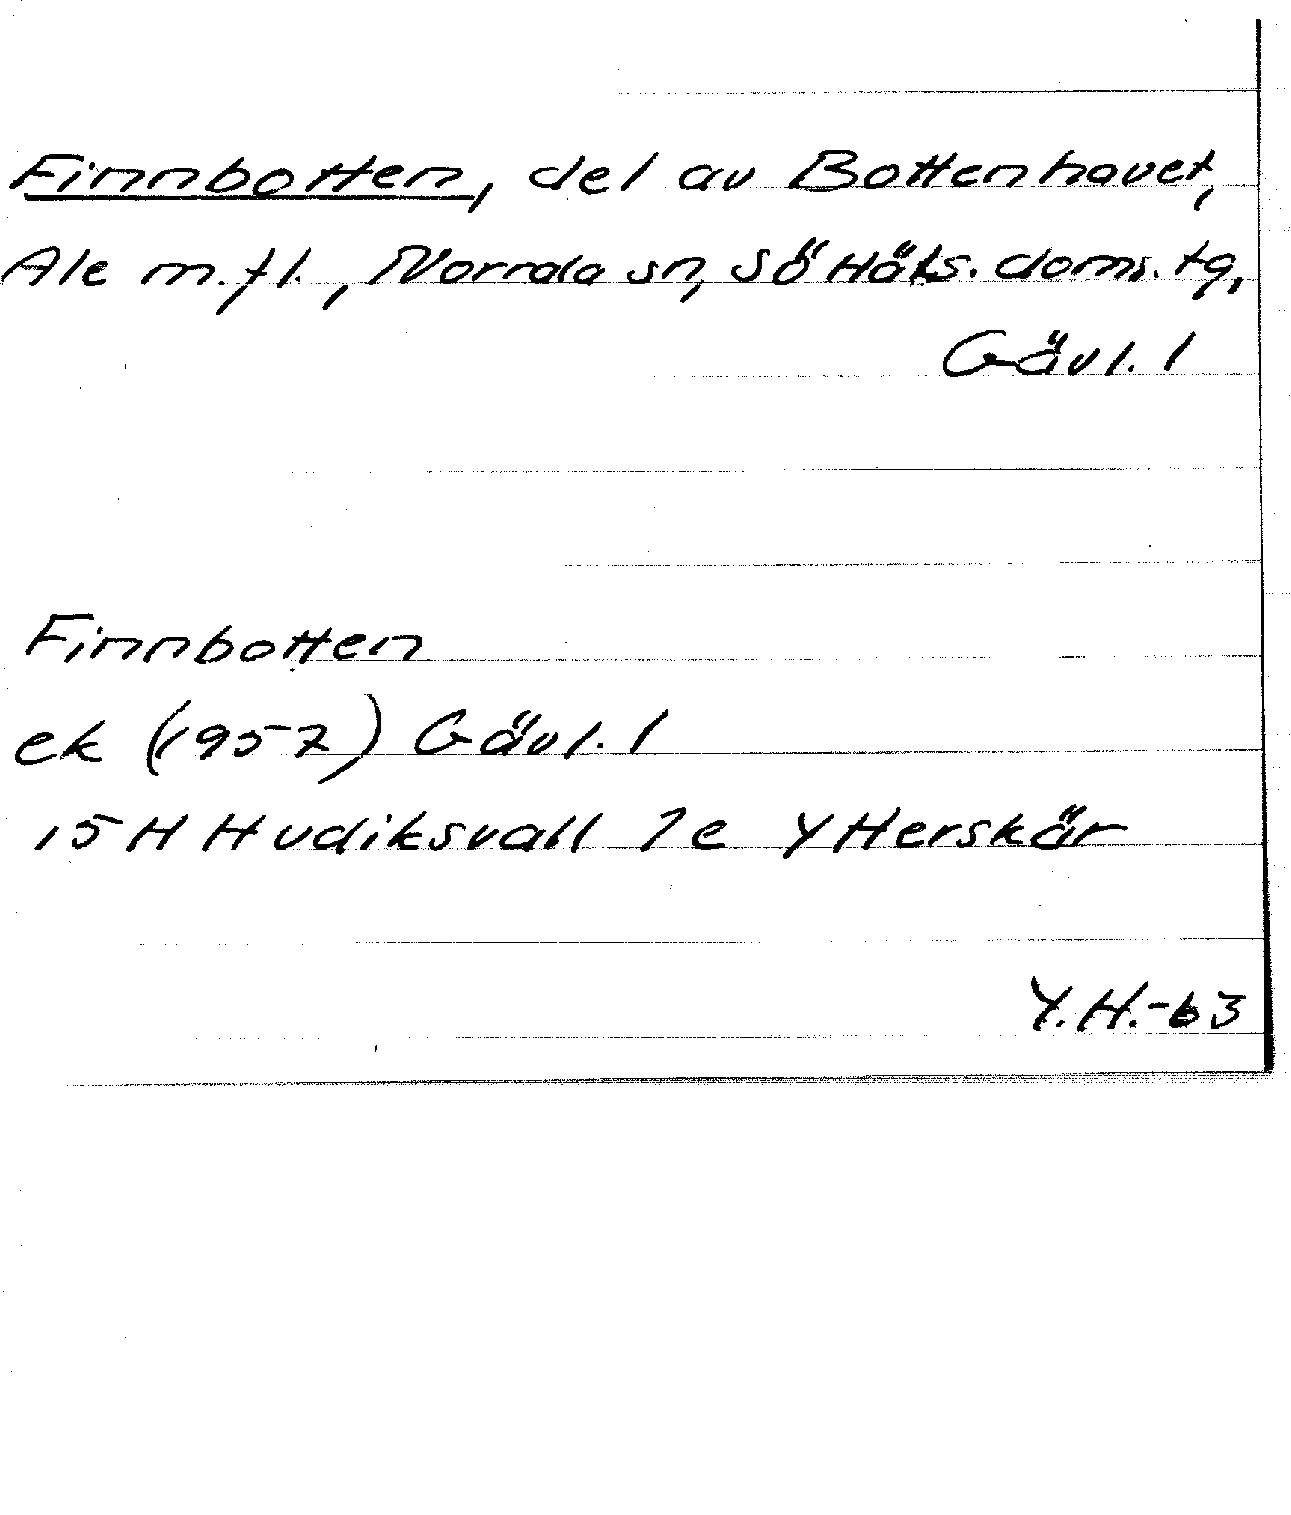 Finnbotten, del av Bottenhavet,
Ale m.fl., Norrala sn, Sö Häls. doms. tg,
Gävl. l
Finnbotten
ek (1957) Gävl. l
15H Hudiksvall 7e Ytterskär
Y.H.-63